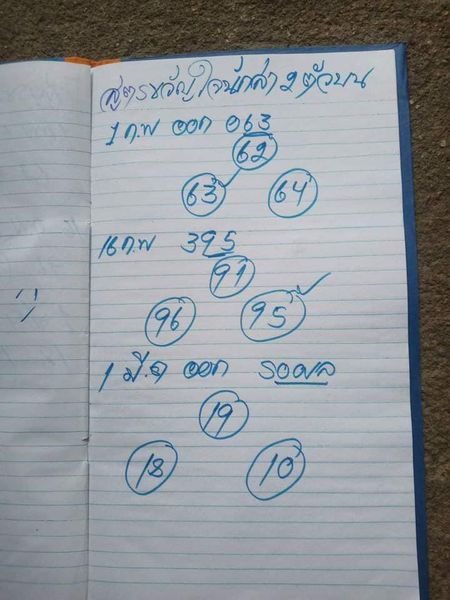 สูตรขวัญใจนักล่า 2 ตัวบน
1 ก.พ ออก 063
62
63 64
16 ก.พ 395
91
96 95
1 มี.ค ออก รอผล
19
18 10